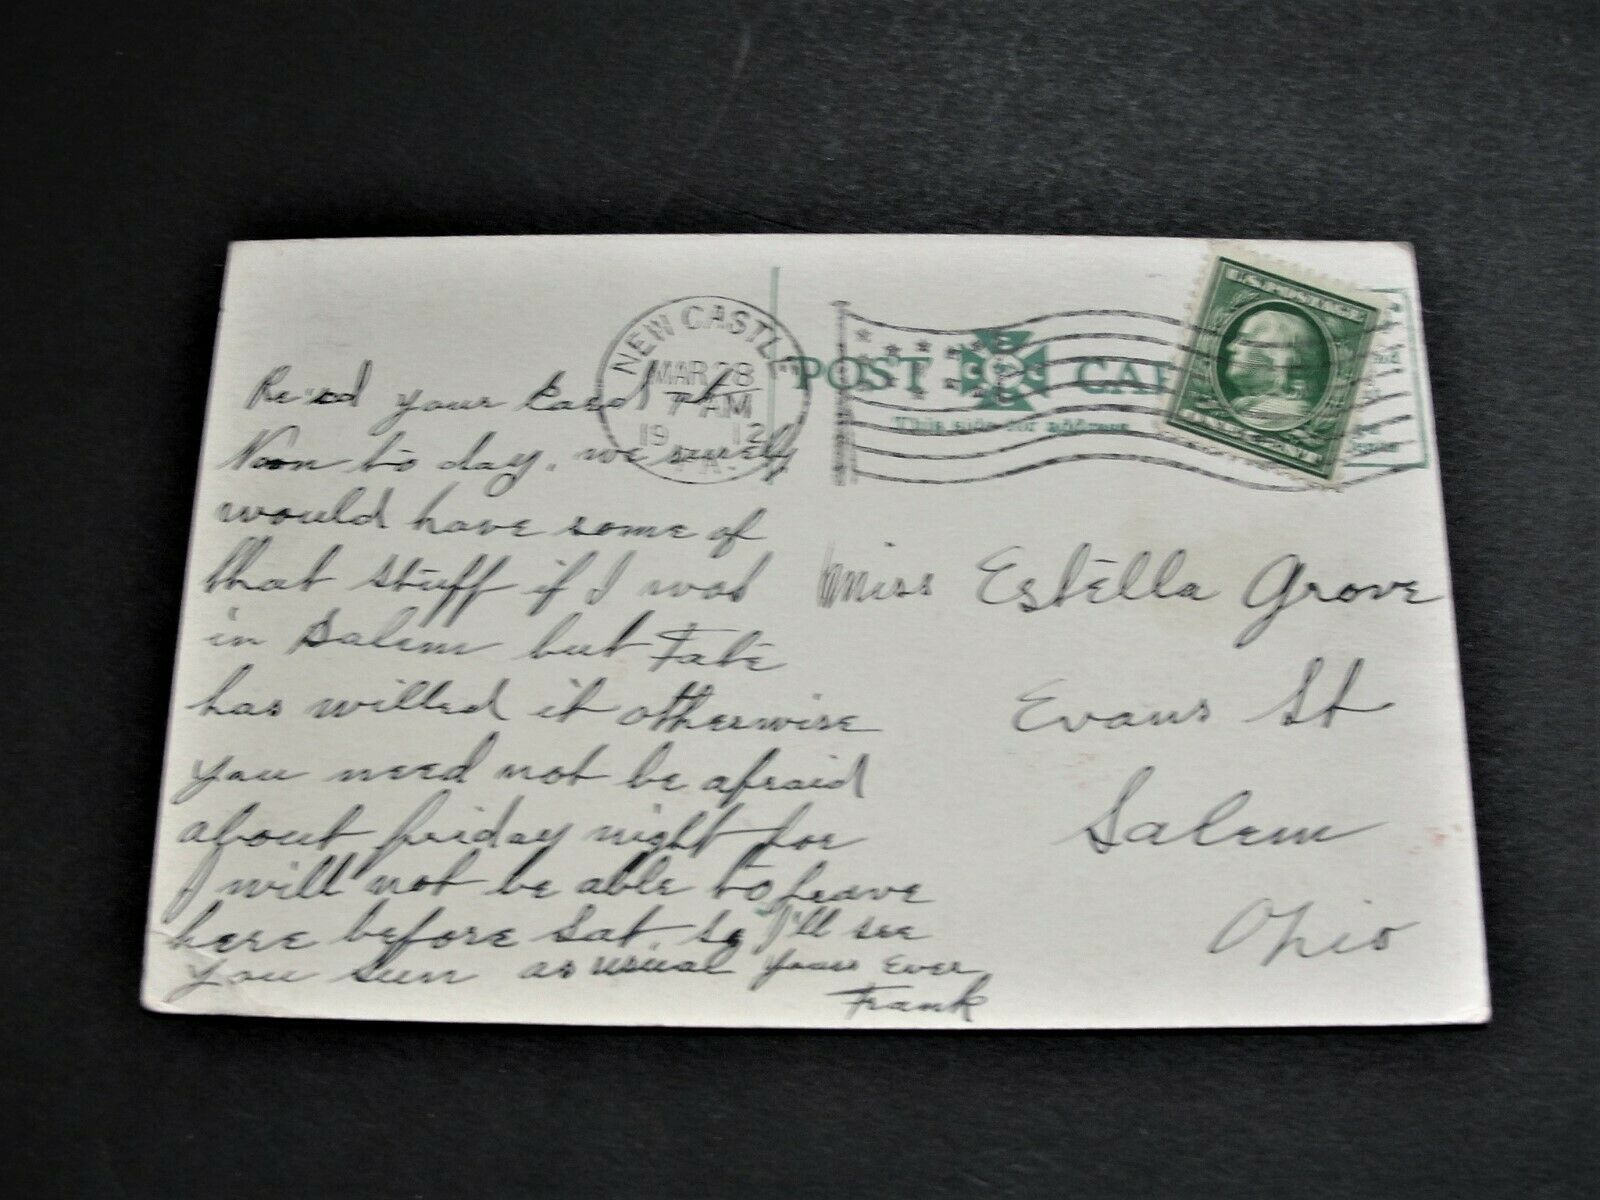 NEW CASTLE
MAR 28
7 AM
19 12
PA.
POST CAR
This side for address
U.S. POSTAGE
Rec'd your Card
Noon to day. we surely
would have some of
that stuff if I was
in Salem but Fate
has willed it otherwise
you need not be afraid
about friday night for
I will not be able to leave
here before Sat. so I'll see
you sun as usual yours Ever
Frank
Miss Estella Grove
Evans St
Salem
Ohio